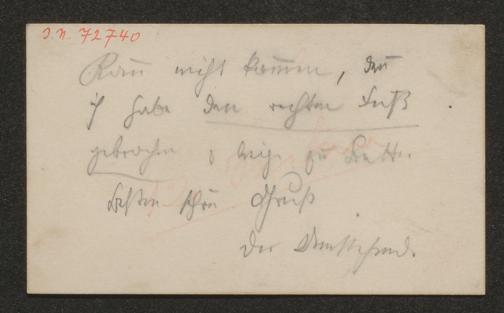 I.N. 72740
Kann nicht kommen, denn
ich habe den rechten Fuß
gebrochen & liege zu Bette.
Besten schön Gruß
der